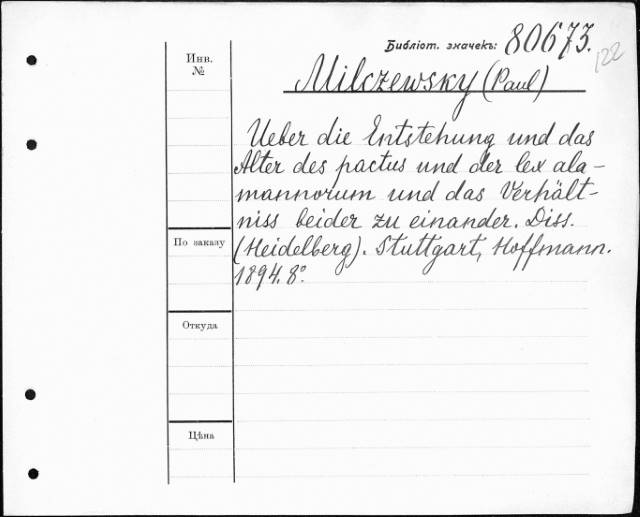 Библіот. значекъ: 80673.
122
Инв.
№
Milczewsky (Paul)
Ueber die Entstehung und das
Alter des pactus und der lex ala-
mannorum und das Verhält-
niss beider zu einander. Diss.
(Heidelberg). Stuttgart, Hoffmann.
1894. 8°.
По заказу
Откуда
Цѣна